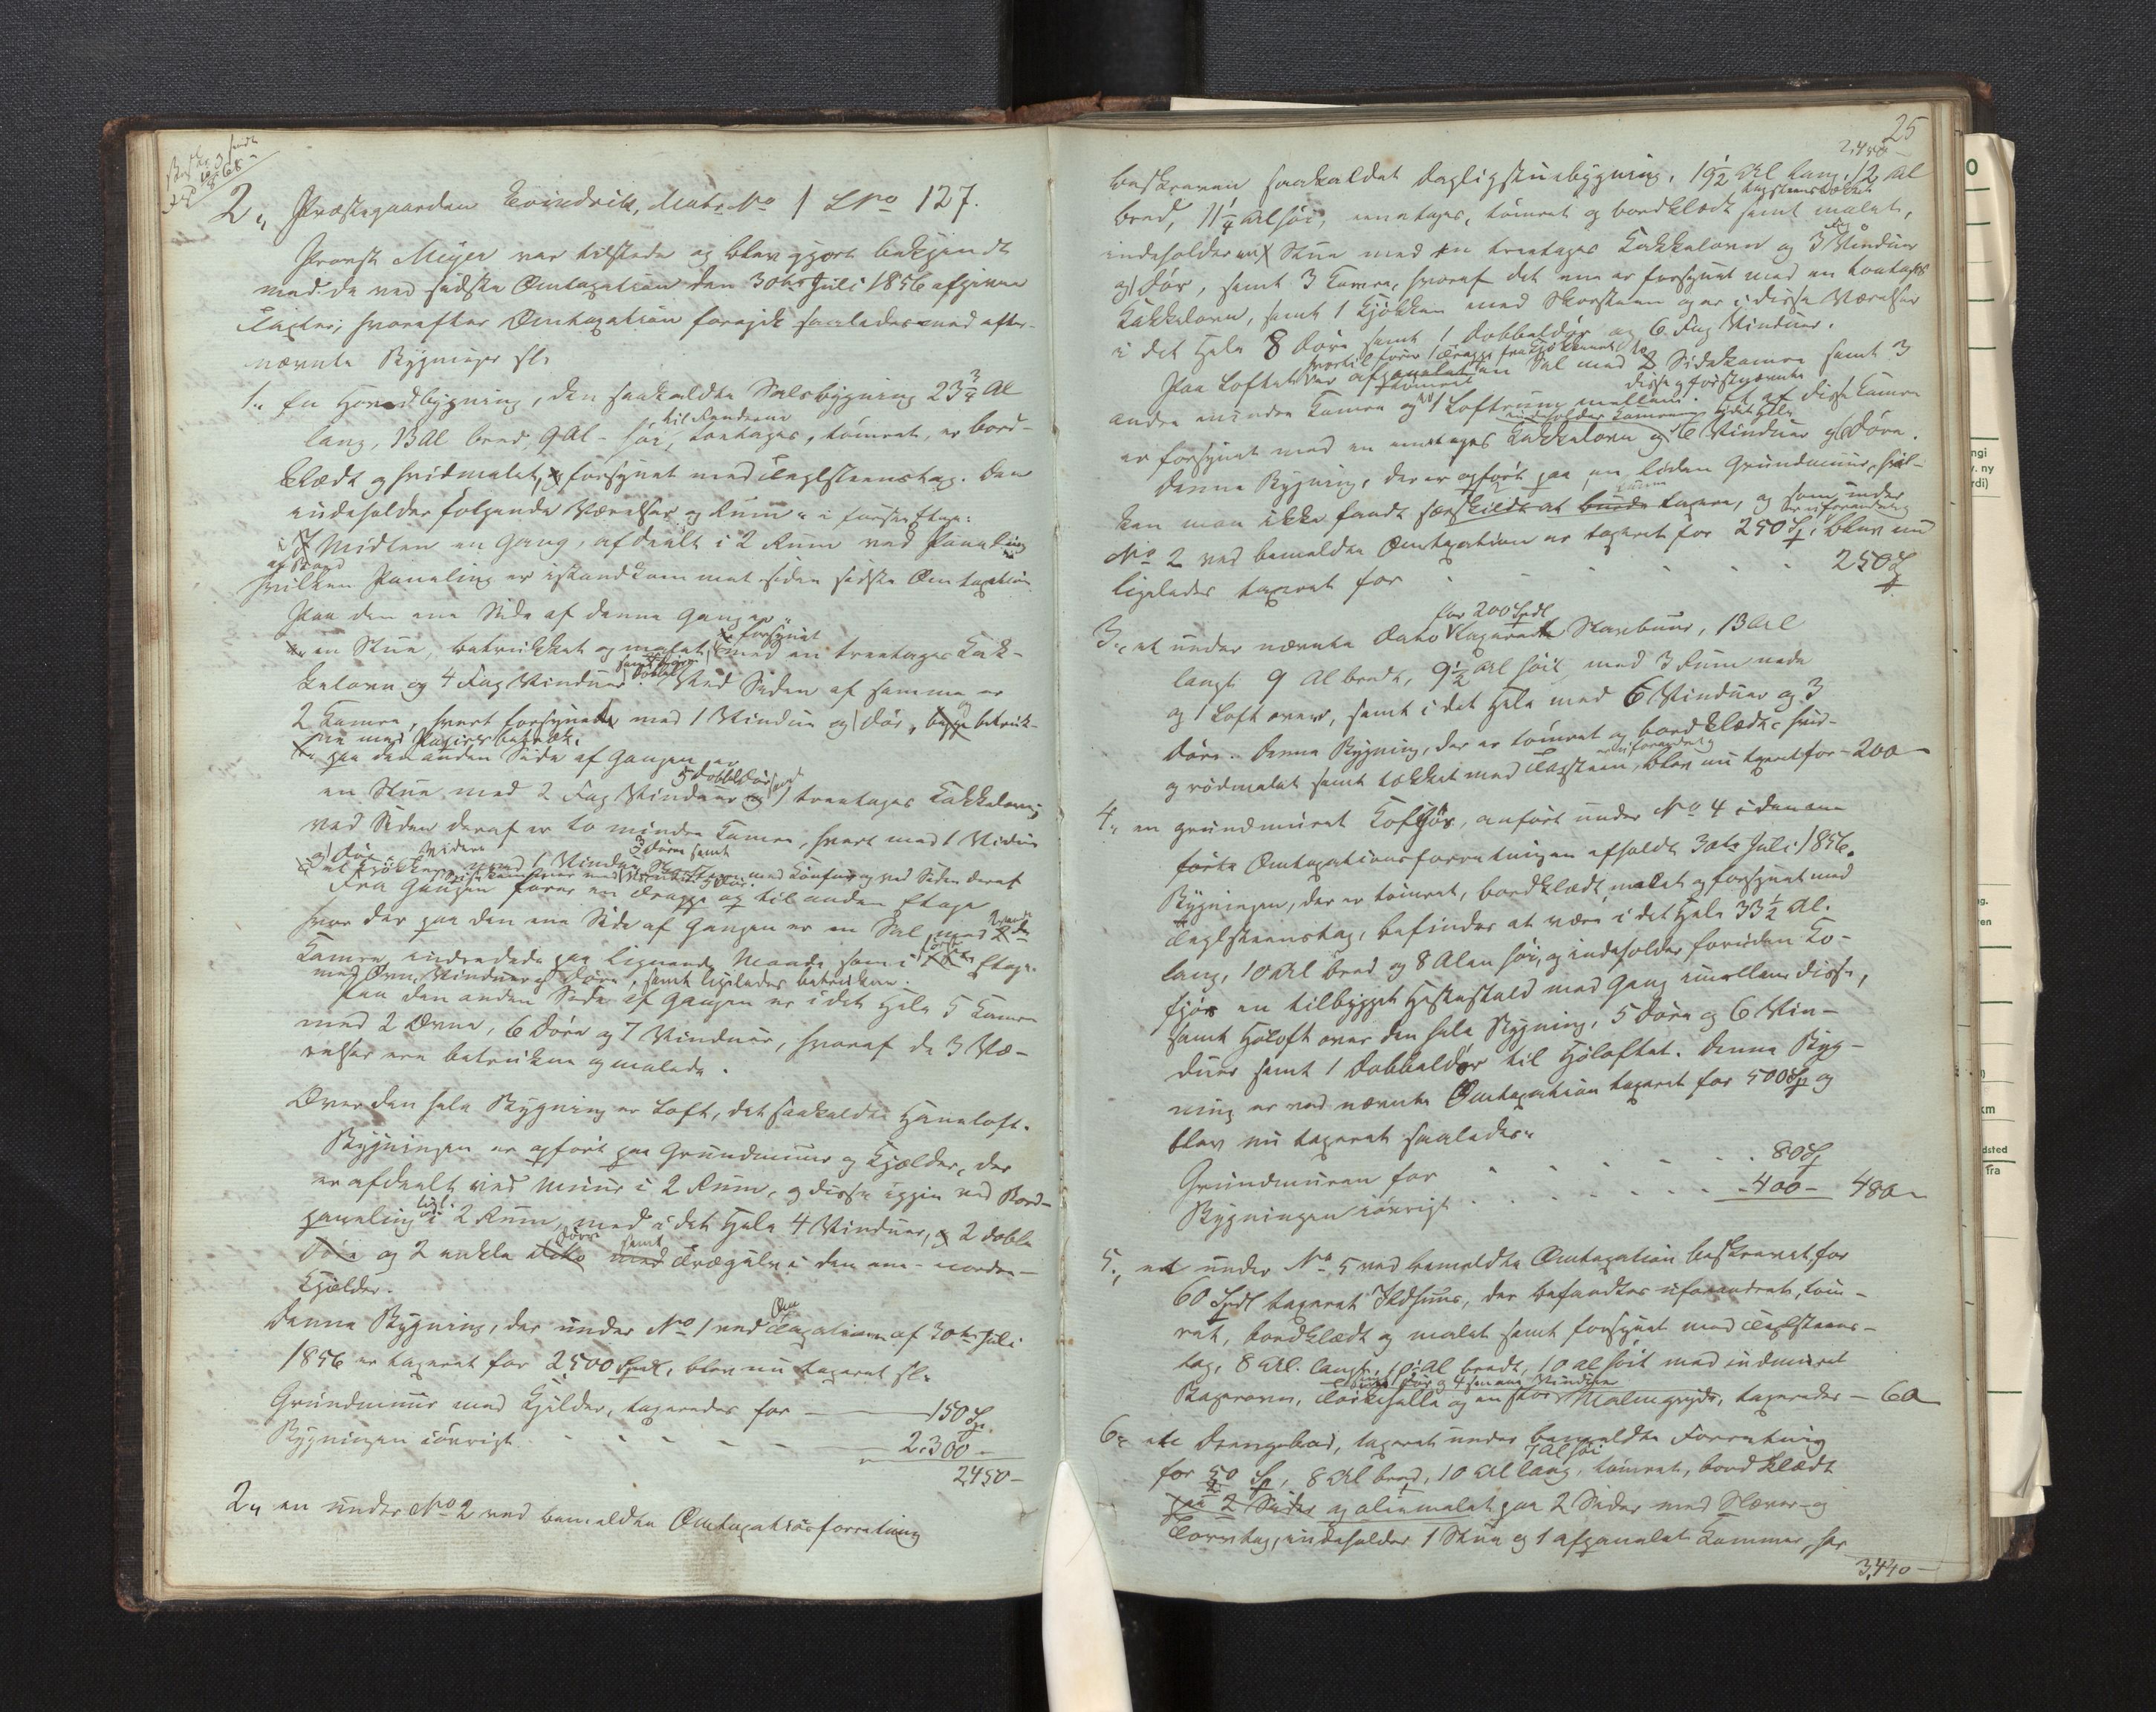 2, Præstegaarden Kvindvik, Matr No 1 LNo 127.
Provst Meyer var tilstede og blev gjort bekjendt
med de ved sidste Omtaxation den 30te Juli 1856 afgivne
Taxter, hvorefter Omtaxation foregik saaledes med efter-
nævnte Bygninger sl:
1., En Hovedbygning, den saakaldte Salsbygning 23 3/4 Al
til Rænderne
lang, 13 Al bred, 9 Al – høi, toetages, tømret, er bord-
klædt og hvidmalet, forsynet med Teglsteenstag. Den
indeholder følgende Værelser og Rum i første Etage:
i Midten en Gang, afdeelt i 2 Rum ved Paneling
af Bord
hvilken Paneling er istandkommet siden sidste Omtaxation
Paa den ene Side af denne Gang er
en Stue, betrukket og malet, forsynet med en treetages Kak-
kelovn og 4 Fag Vinduer. Ved Siden af samme er
2 Kamre, hvert forsynede med 1 Vindue og 1 Dør, og betruk-
ne med Papiirbetræk.
paa den anden Side af Gangen er
5 Dobbeldør
en Stue med 2 Fag Vinduer 1 treetages Kakkelovn;
ved Siden deraf er to mindre Kamre, hvert med 1 Vindue
og 1 Dør. Videre 3 Døre samt
et Kjøkken med 1 Vindue, Skorsteen med Komfur og ved Siden deraf
Fra Gangen fører en Trappe op til anden Etage
hvor der paa den ene Side af Gangen er en Sal med 2de
Kamre, indredede paa lignende Maade som i første Etage
med Ovn, Vinduer og Døre, samt ligeledes betrukken.
Paa den anden Side af Gangen er i det Hele 5 Kamre
med 2 Ovne, 6 Døre og 7 Vinduer, hvoraf de 3 Væ-
relser ere betrukne og malede.
Over den hele Bygning er Loft, det saakaldte Haneloft.
Bygningen er opført paa Grundmuur og Kjælder, der
er afdeelt ved Muur i 2 Rum, og disse igjen ved Bord-
paneling i 2 Rum, med i det Hele 4 Vinduer, 2 doble
Døre og 2 enkle Døre samt Trægulv i den ene – nordre –
Kjælder.
Denne Bygning, der under No 1 ved Omtaxationen af 30te Juli
1856 er taxeret for 2,500 Spdl, blev nu taxeret sl:
Grundmuur med Kjelder, taxeredes for — 150 Sp
Bygningen iøvrigt - - - - - 2,300 –
2450 –
2, en under No 2 ved bemeldte Omtaxationsforretning
25
2,450 –
beskreven saakaldet Dagligstuebygning, 19 1/2 Al lang, 12 Al
tagsteenstækket
bred, 11 1/4 Al høi, eenetages, tømret og bordklædt samt malet,
indeholder en Stue med en treetages Kakkelovn og 3 Fag Vinduer
og 1 Dør, samt 3 Kamre, hvoraf det ene er forsynet med en toetages
Kakkelovn, samt 1 Kjøkken med Skorsteen og er i disse Værelser
i det Hele 8 Døre samt 1 Dobbeldør og 6 Fag Vinduer.
hvortil fører 1 Trappe fra Kjøkkenet
Paa Loftet er afpanelet en Sal med 2 Sidekamre samt 3
disse og førstnævnte
andre mindre Kamre og 1 Loftrum mellem. Et af disse Kamre
indeholder Kamrene i det Hele
er forsynet med en eenetages Kakkelovn og 6 Vinduer og 6 Døre.
Denne Bygning, der er opført paa en liden Grundmuur, hvil-
ken man ikke fandt særskildt at kunne taxere, og som under
er uforandret
No 2 ved bemeldte Omtaxation er taxeret for 250 Sp, blev nu
ligeledes taxeret for - - - - - 250 Sp
for 200 Spdl
3., et under nævnte Dato taxeret Stabbuur, 13 Al
langt 9 Al bredt, 9 1/2 Al høit med 3 Rum nede
og 1 Loft over, samt i det Hele med 6 Vinduer og 3
Døre. Denne Bygning, der er tømret og bordklædt, hvid-
er uforandret
og rødmalet samt tækket med Tagsteen, blev nu taxeret for – 200 –
4., en grundmuret Kofjøs, anført under No 4 i den an-
førte Omtaxationsforretningen afholdt 30te Juli 1856.
Bygningen, der er tømret, bordklædt, malet og forsynet med
Teglsteenstag, befindes at være i det Hele 33 1/2 Al.
lang, 10 Al bred og 8 Alen høi, og indeholder foruden Ko-
fjøs en tilbygget Hestestald med Gang imellem disse,
samt Høloft over den hele Bygning, 5 Døre og 6 Vin-
duer samt 1 Dobbeldør til Høloftet. Denne Byg-
ning er ved nævnte Omtaxation taxeret for 500 Sp og
blev nu taxeret saaledes:
Grundmuren for - - - - - 80 Sp
Bygningen iøvrigt - - - - - 400 – 480 –
5., et under No 5 ved bemeldte Omtaxation beskrevet, for
60 Spdl taxeret Ildhuus, der befandtes uforandret, tøm-
ret, bordklædt og malet samt forsynet med Teglsteens-
tag, 8 Al. langt, 10 Al bredt, 10 Al høit med indmuret
1 Dør og 4 smaae Vinduer
Bagerovn, Tørkehelle og en stor Malmgryde, taxeredes – 60 –
6., et Drengebod, taxeret under bemeldte Forretning
7 Al høi
for 50 Sp, 8 Al bred, 10 Al lang, tømret, bordklædt
paa 2 Sider og oliemalet paa 2 Sider med Næver- og
Torvtag, indeholder 1 Stue og 1 afpanelet Kammer, har
3,440 –